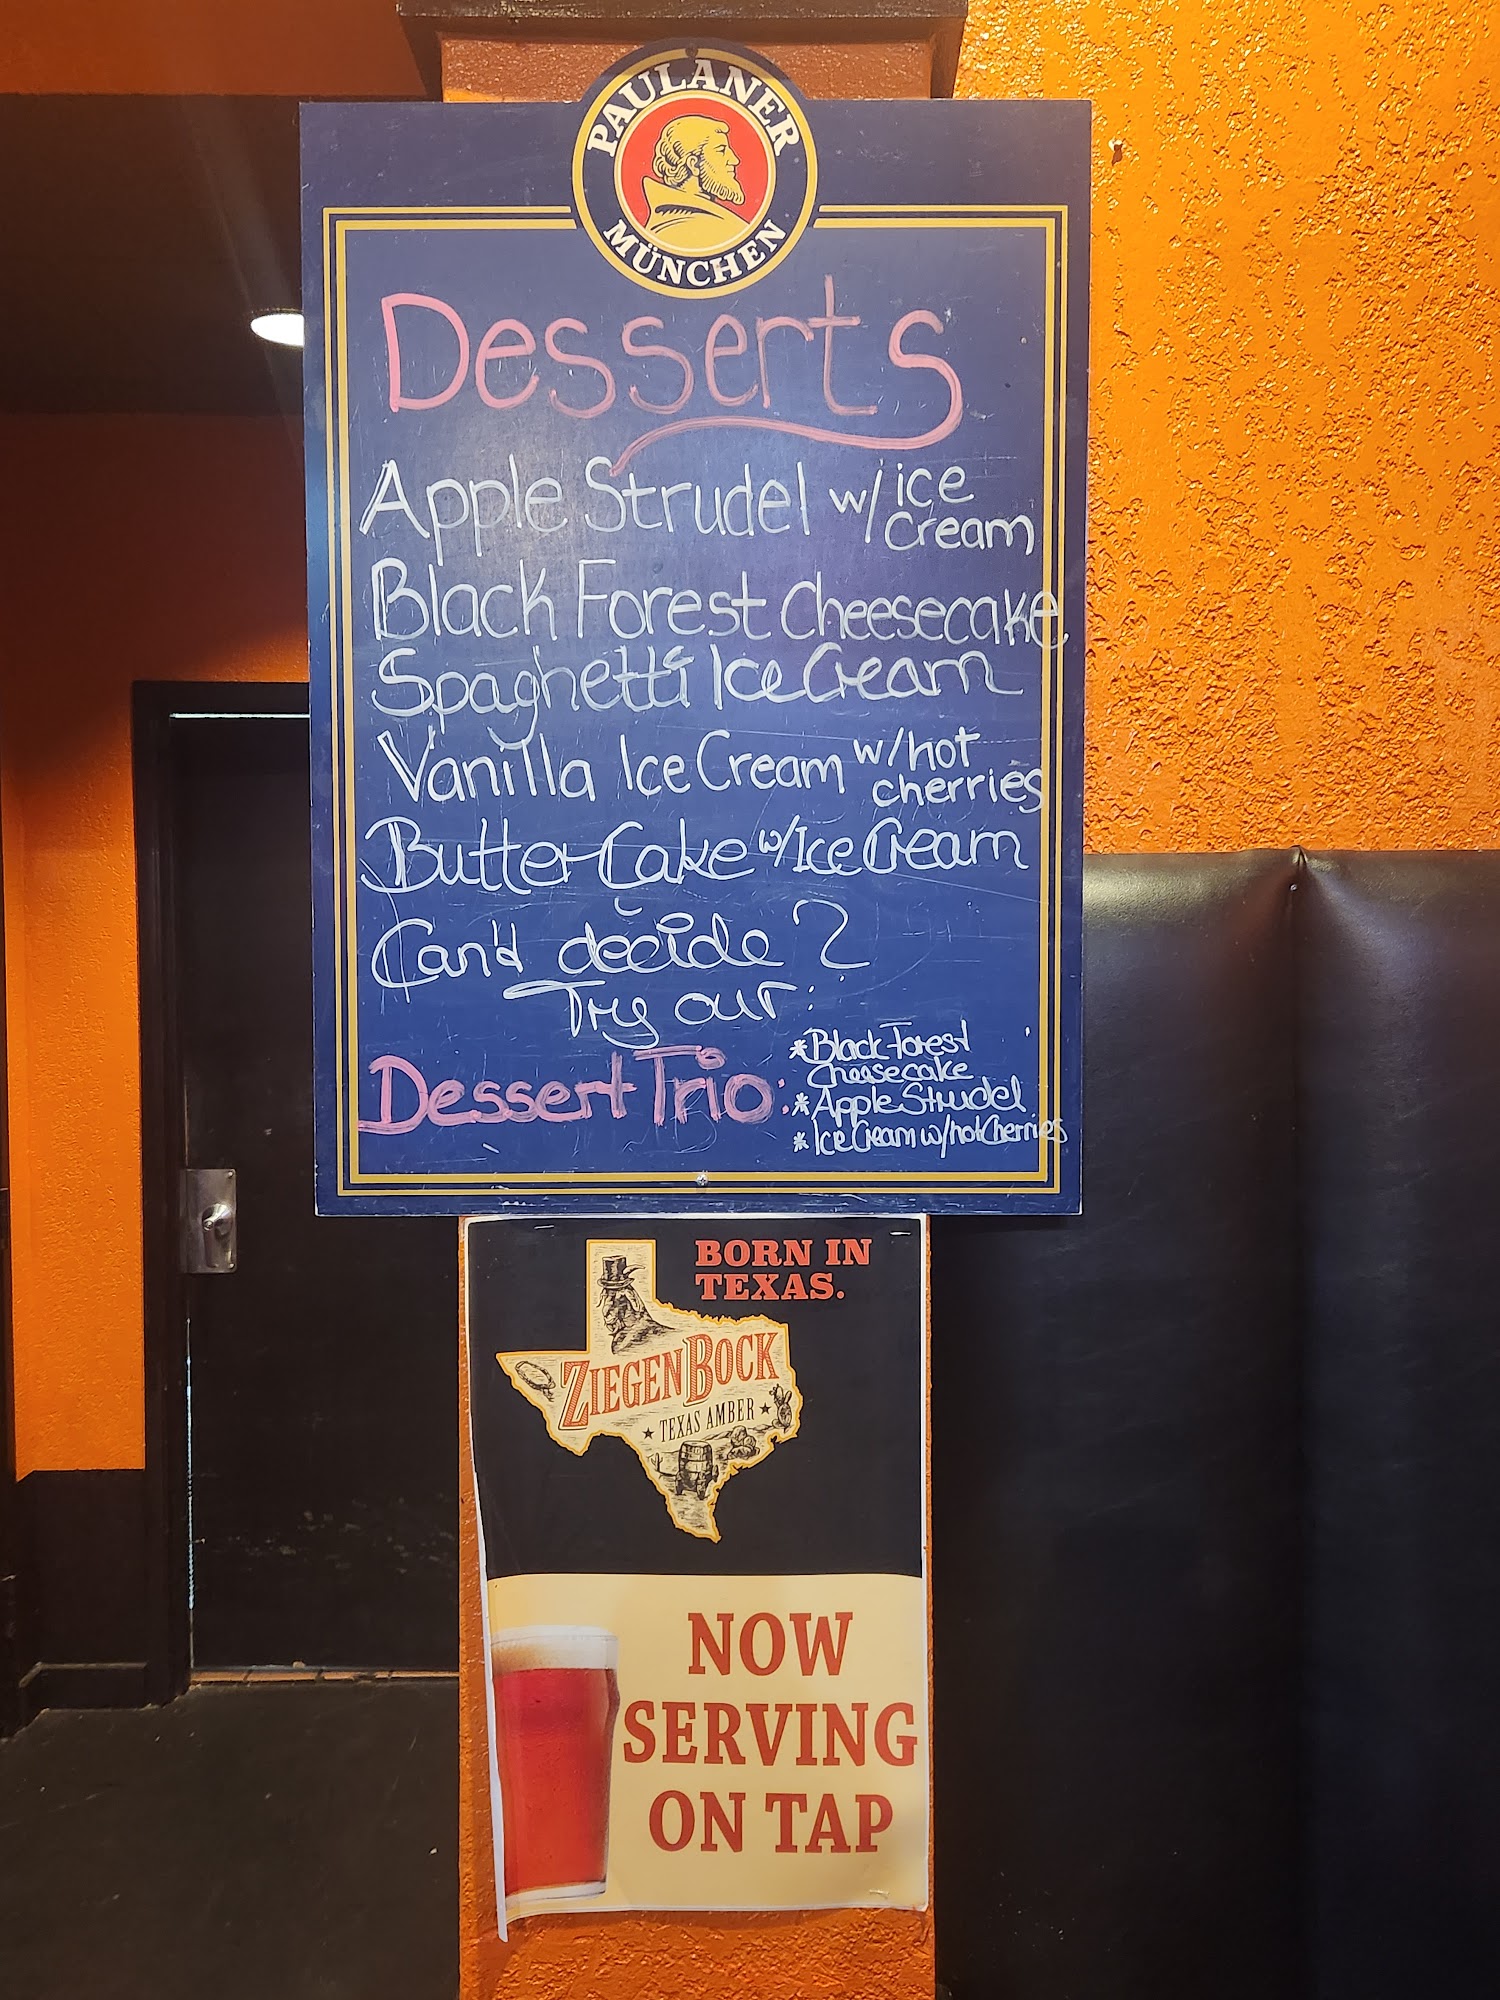 PAULANER
MÜNCHEN
Desserts
Apple Strudel w/ ice
cream
Black Forest Cheesecake
Spaghetti Ice Cream
Vanilla Ice Cream w/hot
cherries
Butter Cake w/Ice Cream
Can't decide?
Try our:
Dessert Trio:
*Black Forest
Cheesecake
*Apple Strudel
*Ice Cream w/hot Cherries
BORN IN
TEXAS.
ZIEGENBOCK
★ TEXAS AMBER ★
NOW
SERVING
ON TAP